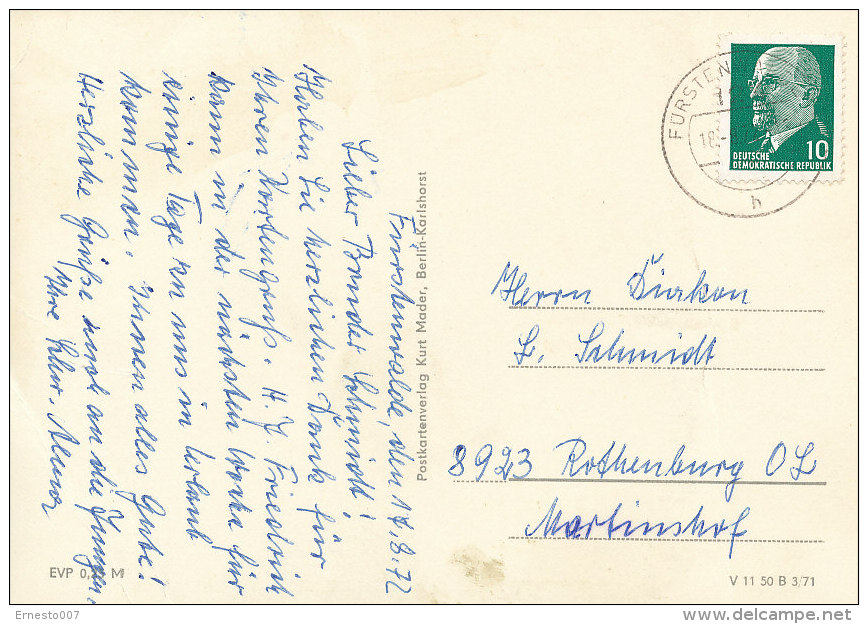 Fürstenwalde, den 17.8.72
Lieber Bruder Schmidt!
Haben Sie herzlichen Dank für
Ihren Kartengruß. H. J. Friedrich
kann in der nächsten Woche für
einige Tage zu uns in Urlaub
kommen. Ihnen alles Gute!
Herzliche Grüße und an die Jungen,
Ihre Schw.
Postkartenverlag Kurt Mader, Berlin-Karlshorst
FÜRSTEN
18.
h
10
DEUTSCHE
DEMOKRATISCHE REPUBLIK
Herrn Diakon
L. Schmidt
8923 Rothenburg OL
Martinshof
EVP 0, M
V 11 50 B 3/71
Ernesto007
delcampe.net